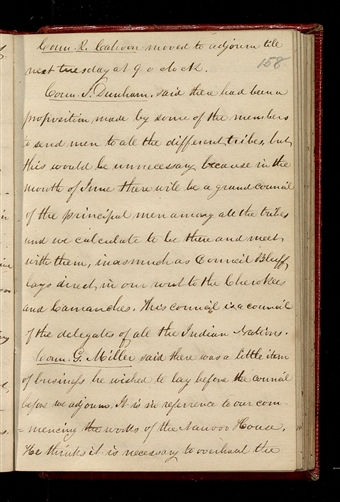 Coun. R. Cahoon moved to adjourn till
next tuesday at 9 o clock.
158
Coun. J. Dunham. said there had been a
proposition made by some of the members
to send men to all the different tribes, but
this would be unnecessary because in the
month of June there will be a grand council
of the principal men among all the tribes
and we calculate to be there and meet
with them, inasmuch as Council Bluff,
lays direct, in our rout to the Cherokees
and Camanches. This council is a council
of the delegates of all the Indian Nations.
Coun. G. Miller said there was a little item
of business he wished to lay before the council
before we adjourn. It is in reference to our com-
=mencing the works of the Nauvoo House,
He thinks it is necessary to overhaul the